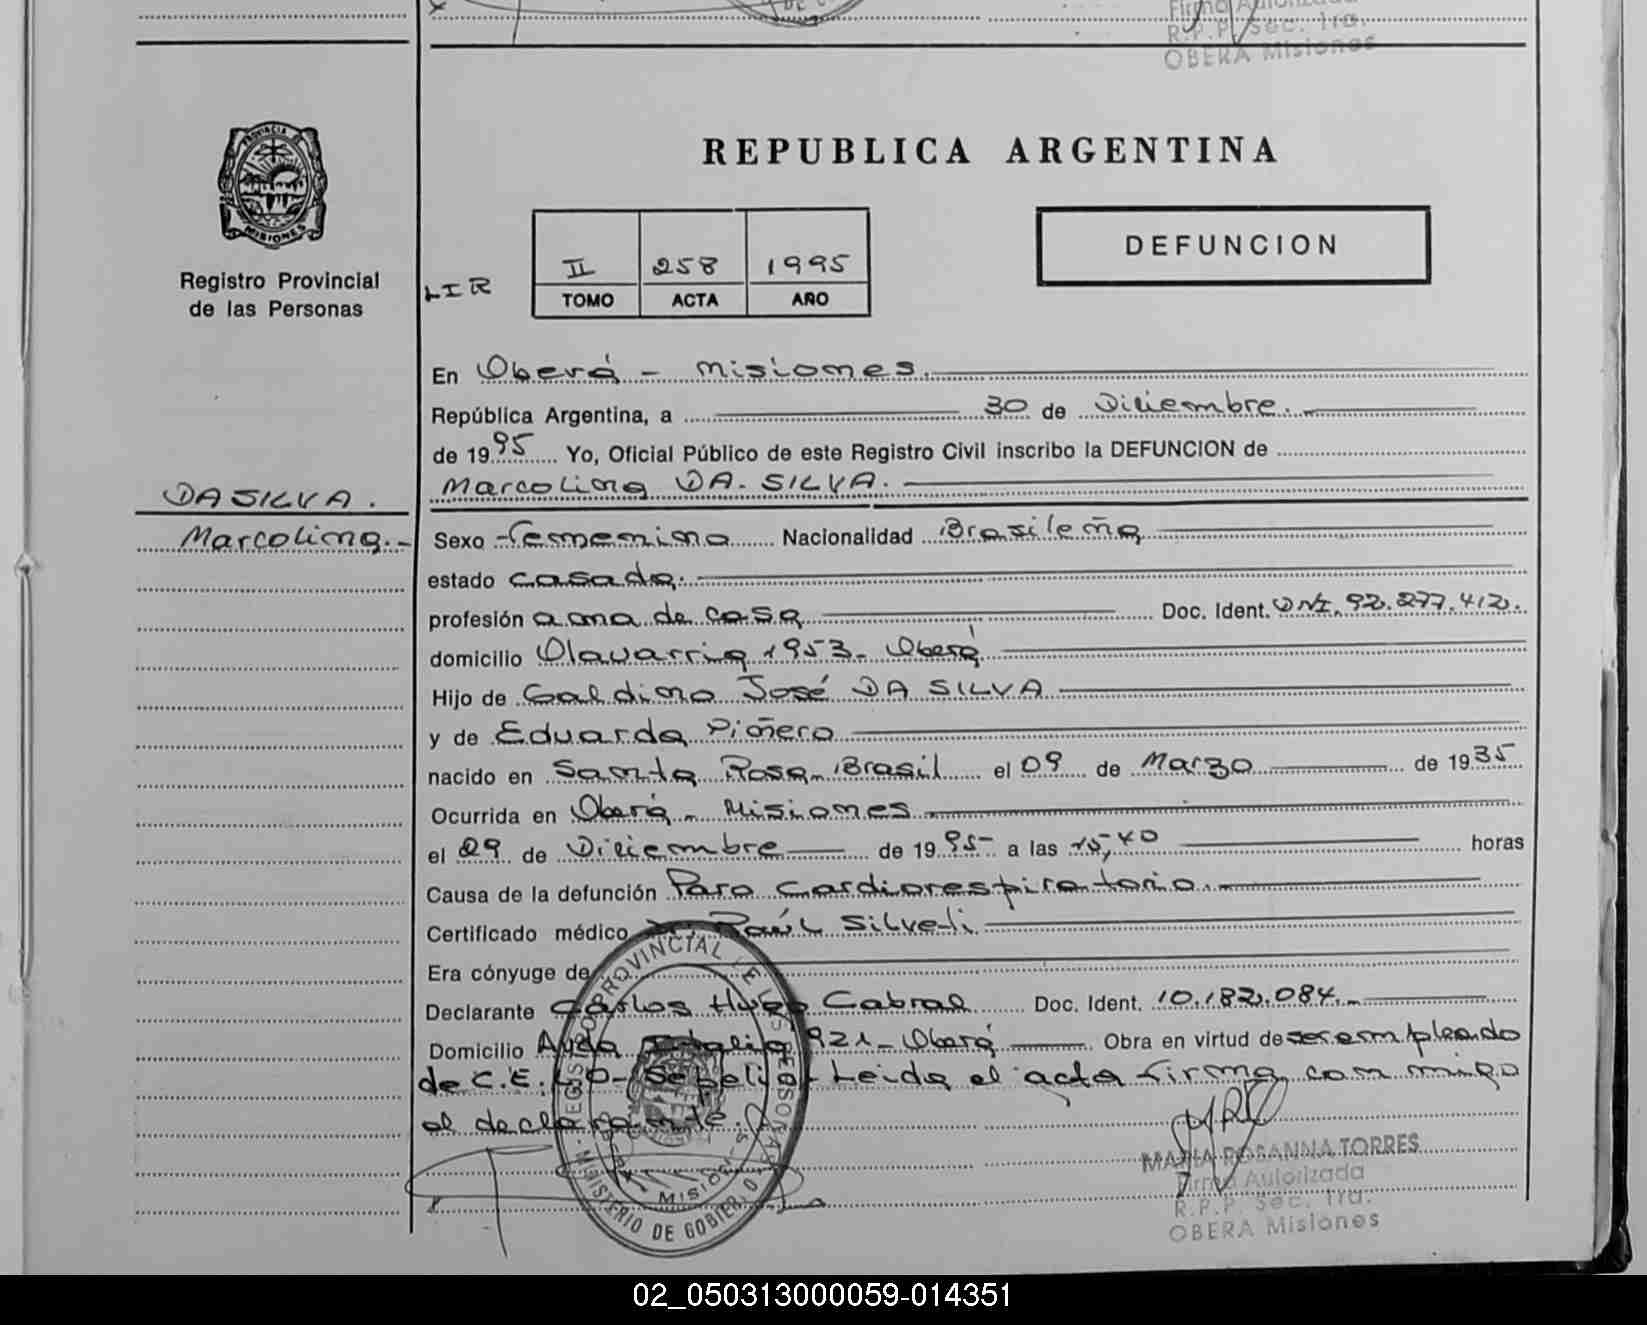 Firma Autorizada
R.P.P. Sec. 1ra.
OBERA Misiones
PROVINCIA DE
MISIONES
Registro Provincial
de las Personas
REPUBLICA ARGENTINA
DEFUNCION
LIR
II 258 1995
TOMO ACTA AÑO
En Oberá - Misiones.
República Argentina, a 30 de Diciembre.
de 1995 Yo, Oficial Público de este Registro Civil inscribo la DEFUNCION de
DA SILVA.
Marcolina DA. SILVA.
Marcolina.-
Sexo Femenino Nacionalidad Brasileña
estado casada.
profesión ama de casa Doc. Ident. DNI. 92.277.412.
domicilio Olavarria 1953- Oberá
Hijo de Galdino José DA SILVA
y de Eduarda Piñero
nacido en Santa Rosa- Brasil el 09 de Marzo de 1935
Ocurrida en Oberá - Misiones
el 29 de Diciembre de 1995 a las 15,40 horas
Causa de la defunción Paro Cardiorespiratorio.
Certificado médico Dr. Raúl Silveti
Era cónyuge de
Declarante Carlos Hugo Cabral Doc. Ident. 10.182.084.-
Domicilio Avda Italia 921- Oberá Obra en virtud de ser empleado
de C.E.L.O- Sepelio- Leida el acta firma con migo
el declarante.
REGISTRO PROVINCIAL DE LAS PERSONAS
MISIONES
MINISTERIO DE GOBIERNO
MARIA ROSANNA TORRES
Firma Autorizada
R.P.P. Sec. 1ra.
OBERA Misiones
02_050313000059-014351